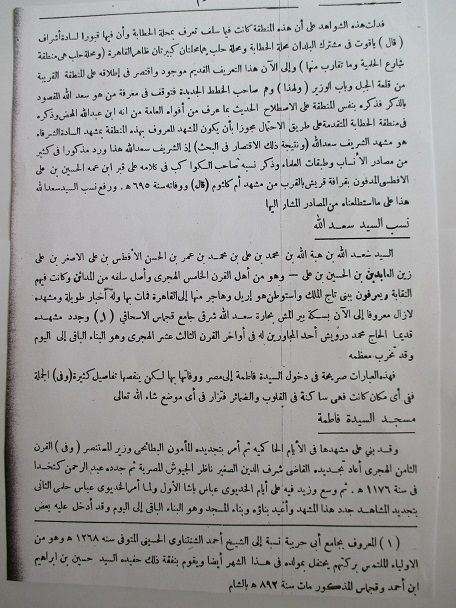 فدلت هذه الشواهد على أن هذه المنطقة كانت فيها سلف تعرف بمحلة الحطابة وأن فيها قبورا لسادة أشراف
( قال ) ياقوت فى مشترك البلدان محلة الحطابة ومحلة حلب هما محلتان كبيرتان ظاهر القاهرة ( ومحلة حلب هى منطقة
شارع الحلمية وما تقارب منها ) وإلى الآن هذا التعريف القديم موجود واقتصر فى إطلاقه على المنطقة القريبة
من قلعة الجبل وباب الوزير ( ولهذا ) وهم صاحب الخطط الجديدة فتوقف فى معرفة من هو سعد الله المقصود
بالذكر فذكره بنفس المنطقة على الاصطلاح الحديث بما عرف من أفواه العامة من انه ابن عبدالله المحض وذكره
فى منطقة الحطابة المتقدمة على طريق الاحتمال مجوزا بأن يكون المشهد المعروف بهذه المنطقة بمشهد السادة الشرفاء
هو مشهد الشريف سعدالله ( ونتيجة ذلك الاقتصار فى البحث ) إذ الشريف سعدالله هذا ورد مذكورا فى كثير
من مصادر الأنساب وطبقات العلماء وذكر نسبه صاحب الكواكب فى كلامه على قبر ابن عمه الحسين بن على
الافطسى المدفون بقرافة قريش بالقرب من مشهد أم كلثوم ( قال ) ووفاته سنة ٦٩٥ هـ . ورفع نسب السيد سعد الله
هذا على ما استطلعناه من المصادر المشار اليها
نسب السيد سعد الله
السيد سعد الله بن هبة الله بن محمد بن على بن محمد بن عمر بن الحسن الأفطس بن على الاصغر بن على
زين العابدين بن الحسين بن على — وهو من أهل القرن الخامس الهجرى وأصل سلفه من المدائن وكانت فيهم
النقابة ويعرفون ببنى تاج الملك واستوطن هو إربل وهاجر منها إلى القاهرة فمات بها وله أخبار طويلة ومشهده
لازال معروفا إلى الآن بسكة بير المش بحارة سعد الله شرقى جامع قجماس الاسحاقى ( ١ ) وجدد مشهده
قديما الحاج محمد درويش أحد المجاورين له فى أواخر القرن الثالث عشر الهجرى وهو البناء الباقى إلى اليوم
وقد تخرب معظمه
فهذه العبارات صريحة فى دخول السيدة فاطمة إلى مصر ووفاتها بها لكن ينقصها تفاصيل كثيرة ( وفى ) الجملة
ففى أى مكان كانت فهى ساكنة فى القلوب والضمائر فتزار فى أى موضع شاء الله تعالى
مسجد السيدة فاطمة
وقد بنى على مشهدها فى الأيام الحاكمية ثم أمر بتجديده المأمون البطائحى وزير المستنصر ( وفى ) القرن
الثامن الهجرى أعاد تجديده القاضى شرف الدين الصغير ناظر الجيوش المصرية ثم جدده عبد الرحمن كتخدا
فى سنة ١١٧٦ هـ . ثم وسع وزيد فيه على أيام الخديوى عباس باشا الأول ولما أمر الخديوى عباس حلمى الثانى
بتجديد المشاهد جدد هذا المشهد وأعيد بناؤه وبناء المسجد وهو البناء الباقى إلى اليوم وقد أدخل عليه بعض
( ١ ) المعروف بجامع أبى حريبة نسبة إلى الشيخ أحمد الشنتناوى الحسينى المتوفى سنه ١٢٦٨ هـ وهو من
الاولياء الملتمس بركتهم يحتفل بمولده فى هذا الشهر أيضا ويقوم بنفقة ذلك حفيده السيد حسين بن ابراهيم
ابن احمد وقجماس المذكور مات سنة ٨٩٢ هـ بالشام